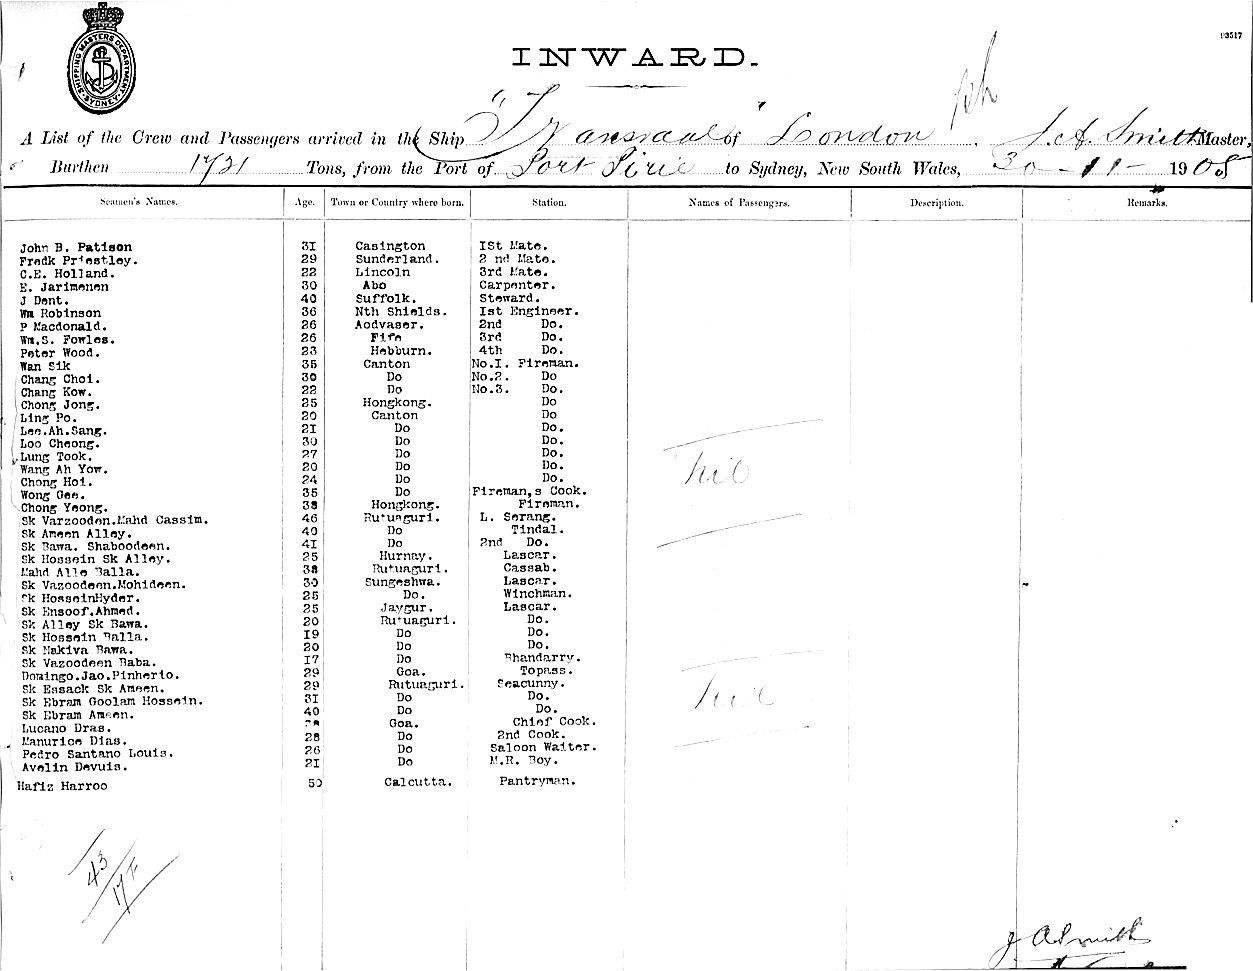 SHIPPING MASTERS DEPARTMENT SYDNEY
93517
INWARD.
A List of the Crew and Passengers arrived in the Ship "Transvaal" of London. J. A. Smith Master,
Burthen 1721 Tons, from the Port of Port Pirie to Sydney, New South Wales, 30-11-1905
Seamen's Names. Age. Town or Country where born. Station. Names of Passengers. Description. Remarks.
John B. Patison 31 Casington ISt Mate.
Fredk Priestley. 29 Sunderland. 2 nd Mate.
C.E. Holland. 22 Lincoln 3rd Mate.
E. Jarimenen 30 Abo Carpenter.
J Dent. 40 Suffolk. Steward.
Wm Robinson 36 Nth Shields. Ist Engineer.
P Macdonald. 26 Aodvaser. 2nd Do.
Wm.S. Fowles. 26 Fife 3rd Do.
Peter Wood. 23 Hebburn. 4th Do.
Wan Sik 35 Canton No.I. Fireman.
Chang Choi. 30 Do No.2. Do
Chang Kow. 22 Do No.3. Do.
Chong Jong. 25 Hongkong. Do
Ling Po. 20 Canton Do
Lee.Ah.Sang. 2I Do Do.
Loo Cheong. 30 Do Do.
Lung Took. 27 Do Do.
Wang Ah Yow. 20 Do Do.
Chong Hoi. 24 Do Do.
Wong Gee. 35 Do Fireman,s Cook.
Chong Yeong. 38 Hongkong. Fireman.
Sk Varzooden.Mahd Cassim. 46 Rutuaguri. L. Serang.
Sk Ameen Alley. 40 Do Tindal.
Sk Bawa. Shaboodeen. 4I Do 2nd Do.
Sk Hossein Sk Alley. 25 Hurnay. Lascar.
Mahd Alle Balla. 38 Rutuaguri. Cassab.
Sk Vazoodeen.Mohideen. 30 Sungeshwa. Lascar.
Sk HosseinHyder. 25 Do. Winchman.
Sk Ensoof.Ahmed. 25 Jaygur. Lascar.
Sk Alley Sk Bawa. 20 Rutuaguri. Do.
Sk Hossein Balla. I9 Do Do.
Sk Makiva Bawa. 20 Do Do.
Sk Vazoodeen Baba. I7 Do Bhandarry.
Domingo.Jao.Pinherio. 29 Goa. Topass.
Sk Essack Sk Ameen. 29 Rutuaguri. Seacunny.
Sk Ebram Goolam Hossein. 3I Do Do.
Sk Ebram Ameen. 40 Do Do.
Lucano Dras. Goa. Chief Cook.
Manurice Dias. 28 Do 2nd Cook.
Pedro Santano Louis. 26 Do Saloon Waiter.
Avelin Devuis. 2I Do M.R. Boy.
Hafiz Harroo 50 Calcutta. Pantryman.
Nil
Nil
43
J A Smith